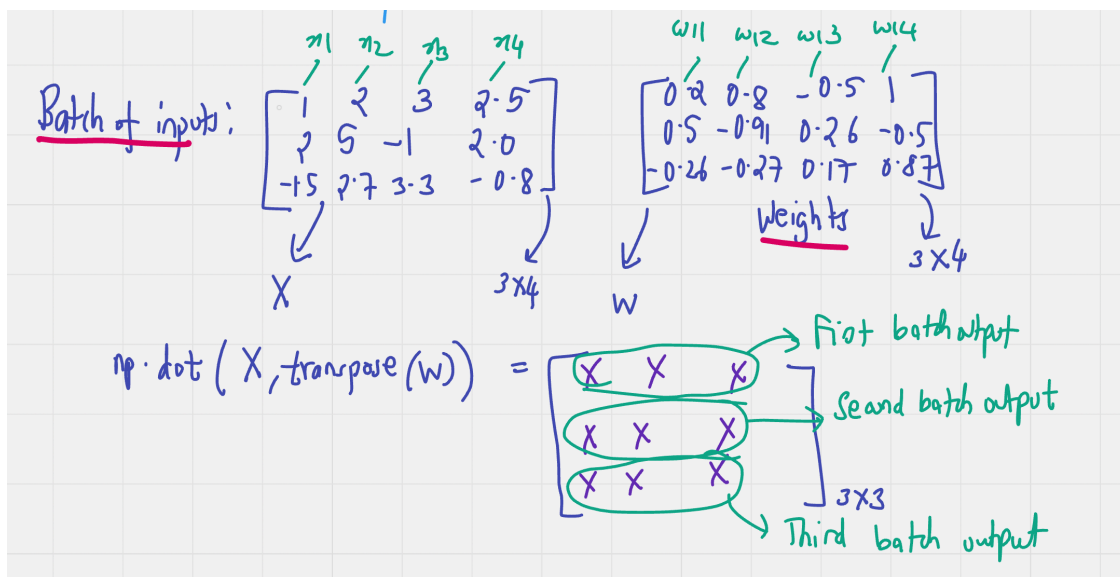 x1 x2 x3 x4 w11 w12 w13 w14
Batch of inputs:
1 2 3 2.5
2 5 -1 2.0
-1.5 2.7 3.3 -0.8
0.2 0.8 -0.5 1
0.5 -0.91 0.26 -0.5
-0.26 -0.27 0.17 0.87
Weights
X 3x4 W 3x4
np.dot(X, transpose(W)) =
X X X
X X X
X X X
3x3
First batch output
Second batch output
Third batch output